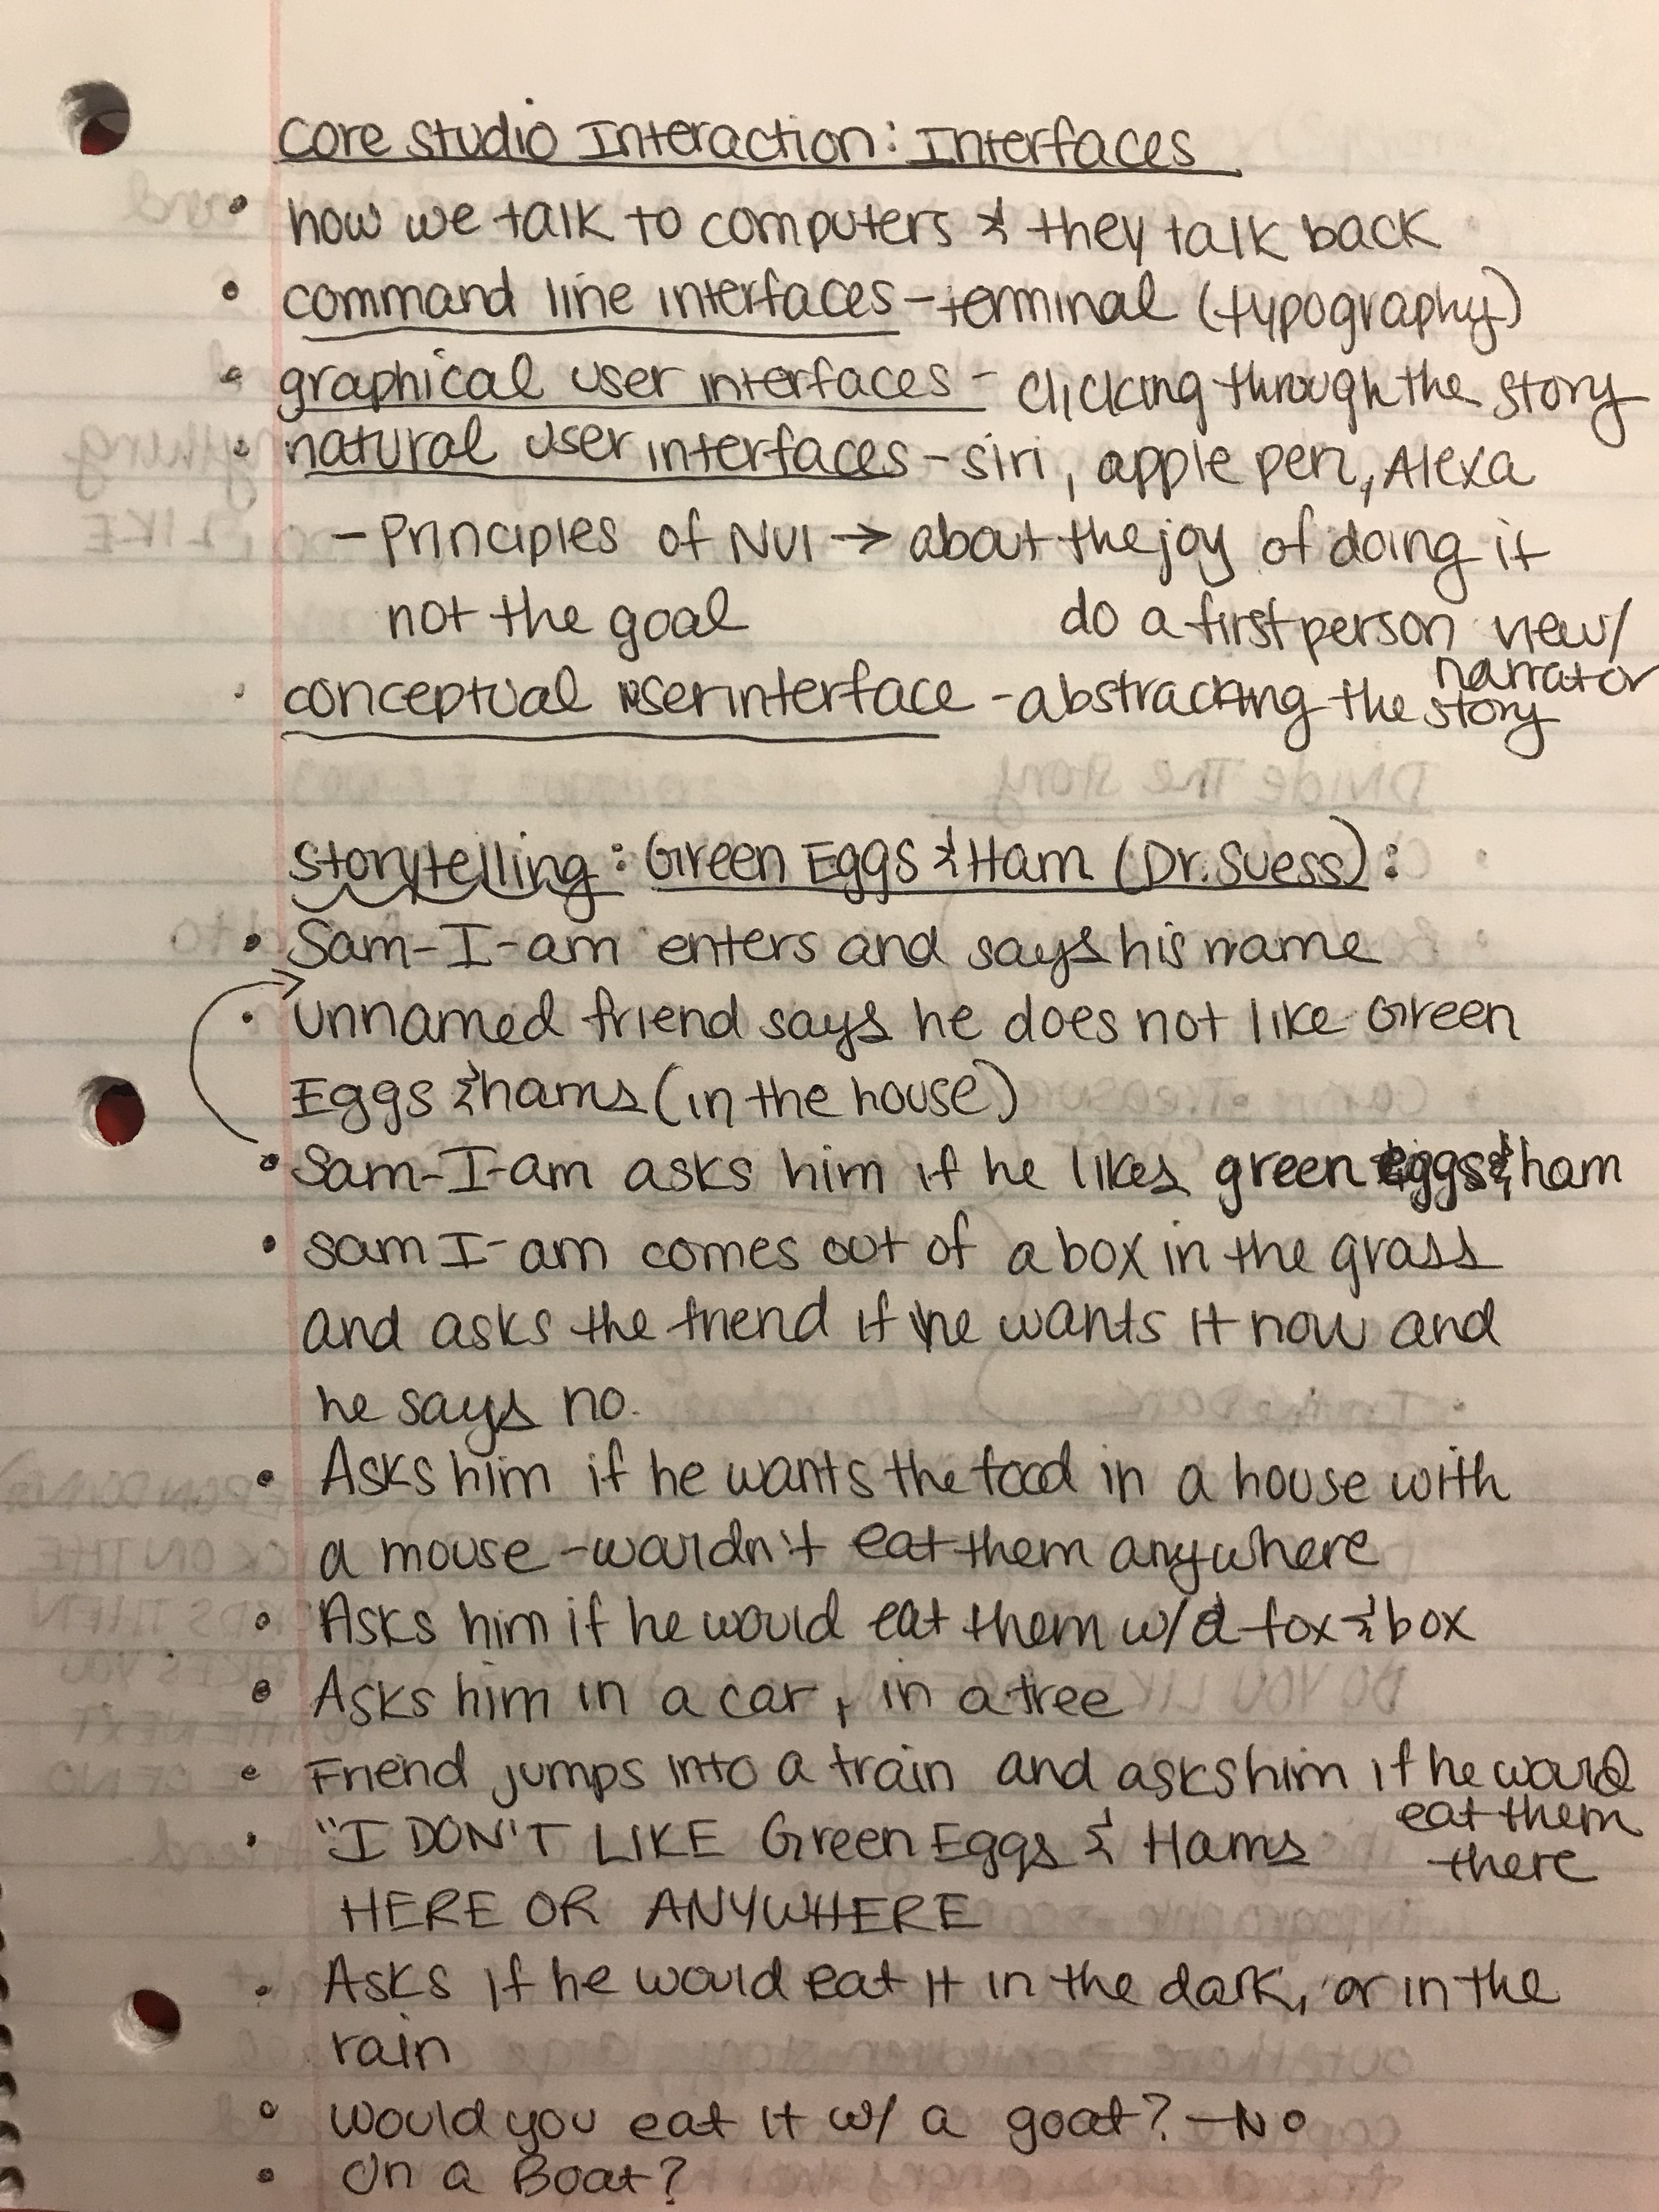 Core Studio Interaction: Interfaces
• how we talk to computers & they talk back
• command line interfaces - terminal (typography)
• graphical user interfaces - clicking through the story
• natural user interfaces - siri, apple pen, Alexa
- Principles of NUI → about the joy of doing it
not the goal
do a first person view/
narrator
• conceptual user interface - abstracting the story
Storytelling: Green Eggs & Ham (Dr. Suess):
• Sam-I-am enters and says his name
• unnamed friend says he does not like Green
Eggs & hams (in the house)
• Sam-I-am asks him if he likes green eggs & ham
• Sam I-am comes out of a box in the grass
and asks the friend if he wants it now and
he says no.
• Asks him if he wants the food in a house with
a mouse - wouldn't eat them anywhere
• Asks him if he would eat them w/ a fox & box
• Asks him in a car, in a tree
• Friend jumps into a train and asks him if he would
eat them
there
• "I DON'T LIKE Green Eggs & Hams
HERE OR ANYWHERE
• Asks if he would eat it in the dark, or in the
rain
• would you eat it w/ a goat? - No
• On a Boat?